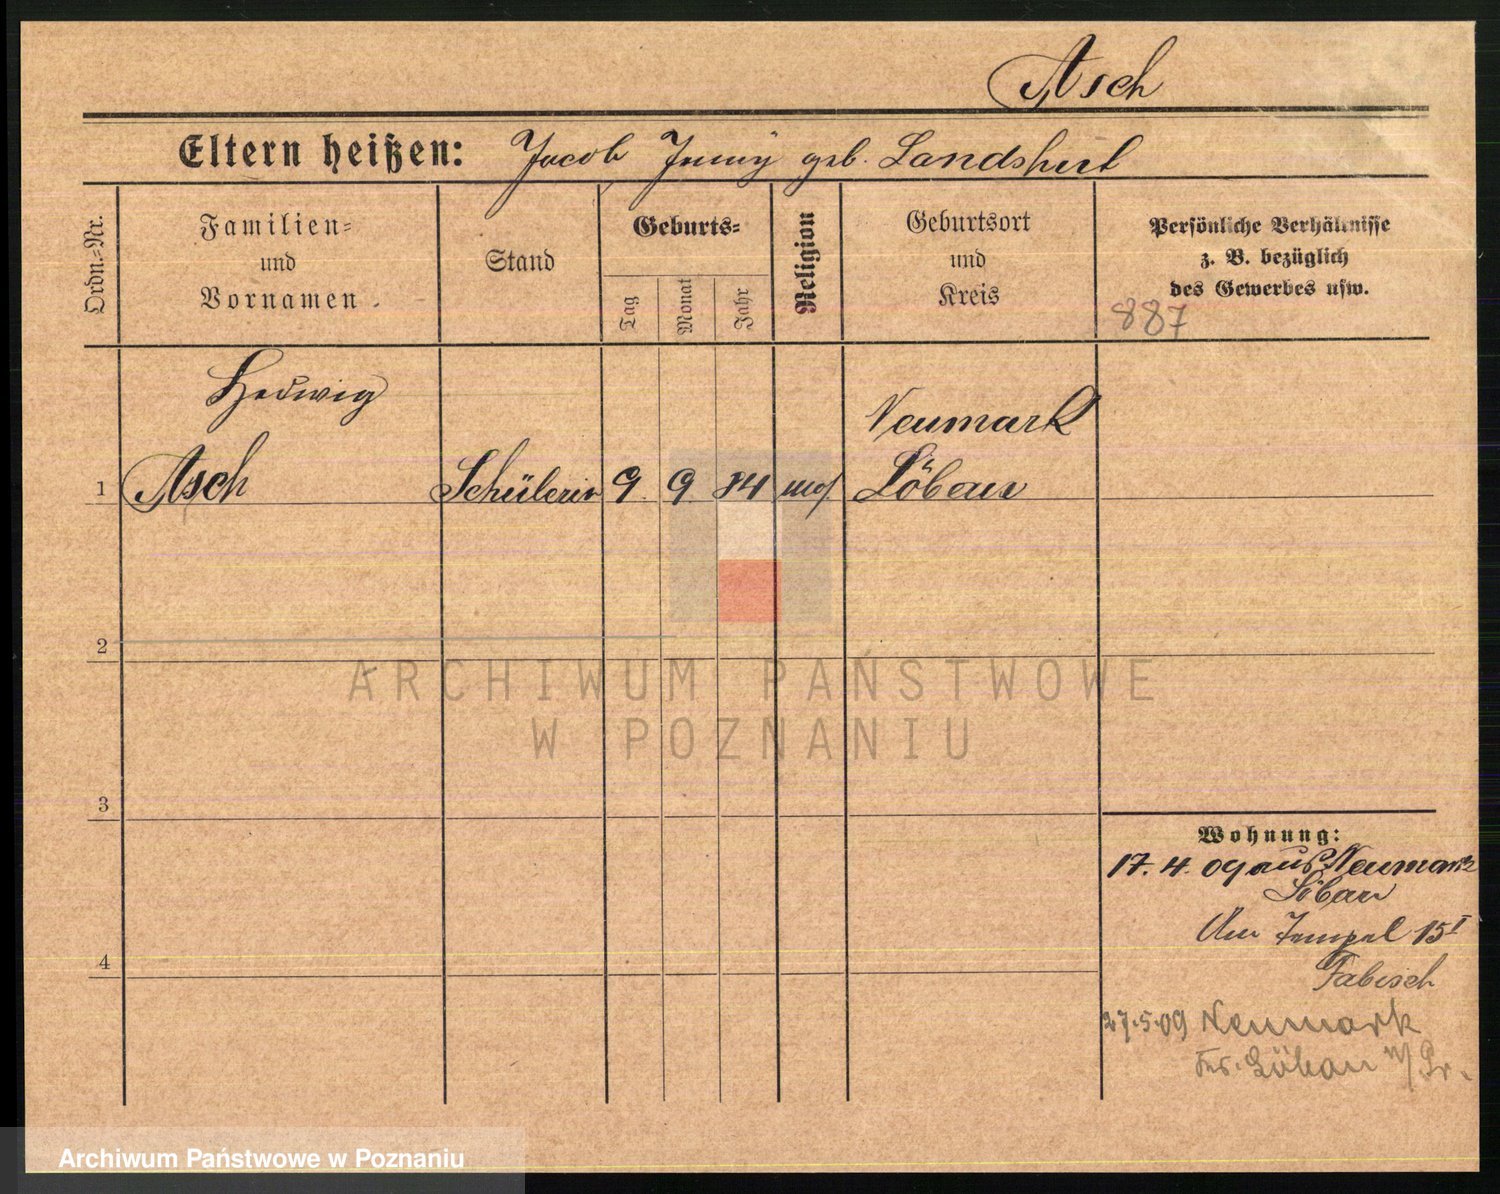 Asch
Eltern heißen: Jacob Jenny geb. Landshut
Ordn.-Nr.
Familien- und Vornamen
Stand
Geburts-
Tag
Monat
Jahr
Religion
Geburtsort und Kreis
Persönliche Verhältnisse
z. B. bezüglich
des Gewerbes usw.
887
Hedwig
Neumark
1 Asch Schülerin 9. 9. 94 mos. Löbau
2
3
4
Wohnung:
17. 4. 09 aus Neumark
Löbau
Am Tempel 15 I
Fabisch
27.5.09 Neumark
Krs. Löbau W/Pr.
ARCHIWUM PAŃSTWOWE
W POZNANIU
Archiwum Państwowe w Poznaniu